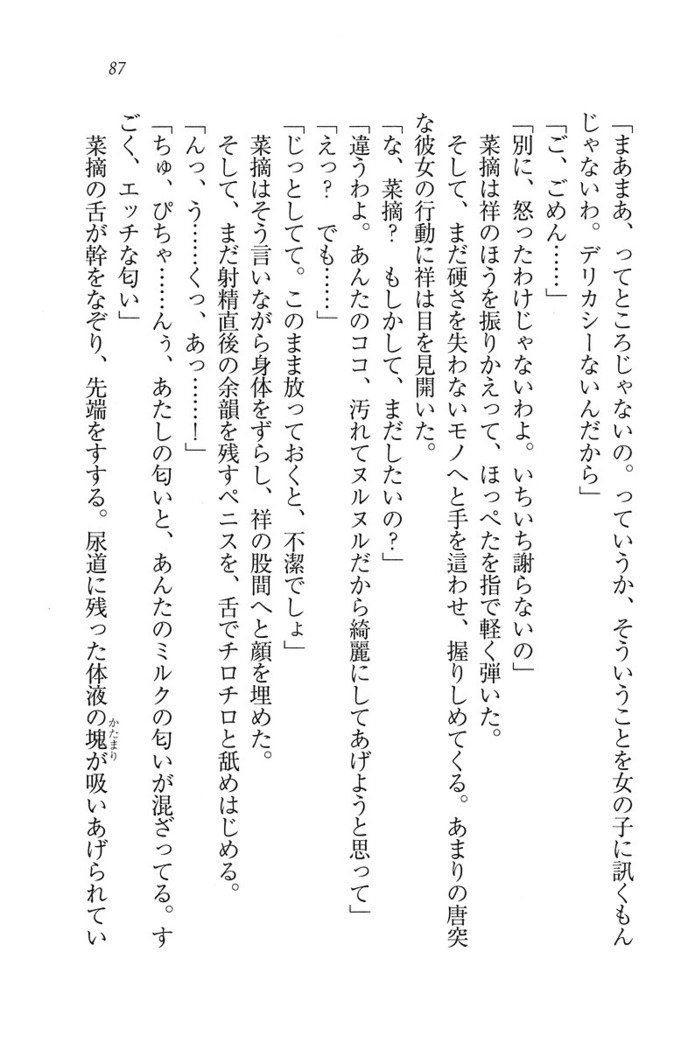 87
「まあまあ、ってところじゃないの。っていうか、そういうことを女の子に訊くもん
じゃないわ。デリカシーないんだから」
「ご、ごめん……」
「別に、怒ったわけじゃないわよ。いちいち謝らないの」
菜摘は祥のほうを振りかえって、ほっぺたを指で軽く弾いた。
そして、まだ硬さを失わないモノへと手を這わせ、握りしめてくる。あまりの唐突
な彼女の行動に祥は目を見開いた。
「な、菜摘？　もしかして、まだしたいの？」
「違うわよ。あんたのココ、汚れてヌルヌルだから綺麗にしてあげようと思って」
「えっ？　でも……」
「じっとしてて。このまま放っておくと、不潔でしょ」
菜摘はそう言いながら身体をずらし、祥の股間へと顔を埋めた。
そして、まだ射精直後の余韻を残すペニスを、舌でチロチロと舐めはじめる。
「んっ、う……くっ、あっ……！」
「ちゅ、ぴちゃ……んぅ、あたしの匂いと、あんたのミルクの匂いが混ざってる。す
ごく、エッチな匂い」
菜摘の舌が幹をなぞり、先端をすする。尿道に残った体液の塊が吸いあげられてい
かたまり